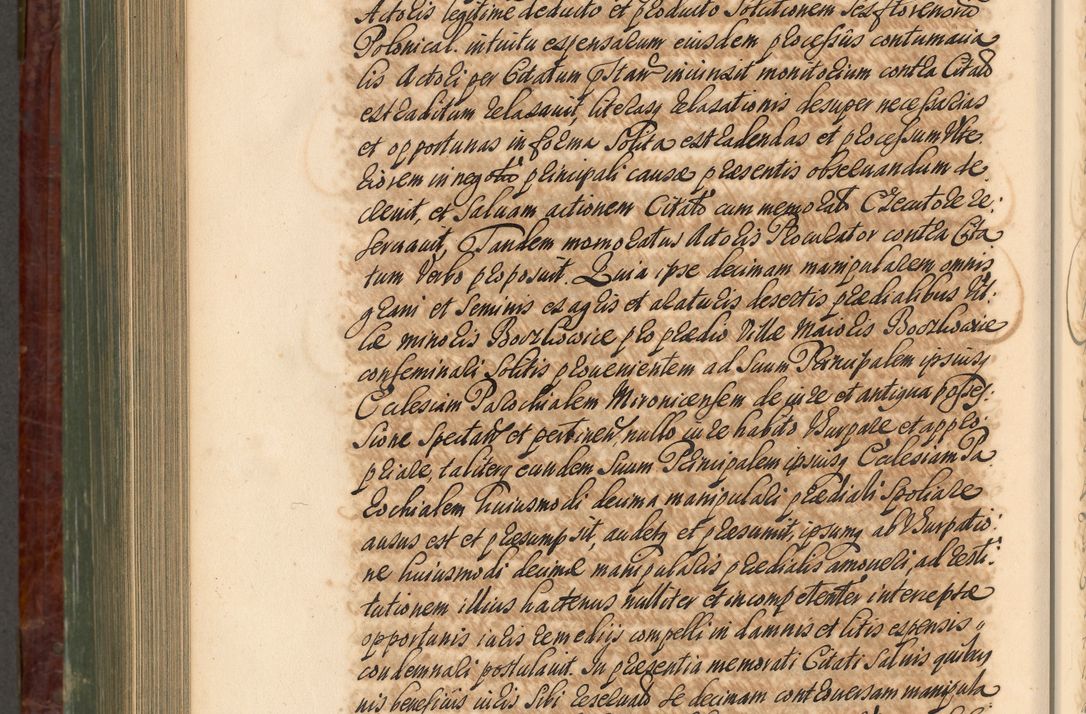 Actoris legitime deducto et producto Solutionem sex florenorũ
Polonical. intuitu expensarum eiusdem processûs contumacia
lis Actori per Citatum iniunxit monitorium contra Citatũ
extraditum relaxavit, literasq relaxationis desuper necessarias
et opportunas in forma Solita extradendas et processum Ulte
riorem in negotio principali causæ præsentis observandum de
crevit, et Salvam actionem Citato cum memorato Executore re:
servavit, Tandem memoratus Actoris Procurator contra Cita
tum Verbo proposuit. Quia ipse decimam manipularem omnis
grani et Seminis ex agris et araturis desertis prædialibus Vil:
læ minoris Borzkowice pro prædio Villæ Maioris Borzkowice
conseminari Solitis provenientem ad Suum Principalem ipsiusq
Ecclesiam Parochialem Mironicensem de iure et antiqua posses:
sione Spectan et pertinen, nullo iure habito Usurpare et appro:
priare, taliterq eundem Suum Principalem ipsiusq Ecclesiam Pa
rochialem huiusmodi decima manipulari prædiali Spoliare
ausus est et præsumpsit, audetq et præsumit, ipsumq ab Usurpatio:
ne huiusmodi decimæ manipularis prædialis amoveri, ad resti:
tutionem illius hactenus nulliter et incompetenter interceptæ
opportunis iuris remedijs compelli in damnis et litis expensis
condemnari postulavit. In præsentia memorati Citati Salvis quibusq
nis beneficiis iuris Sibi reservato se decimam controversam manipula